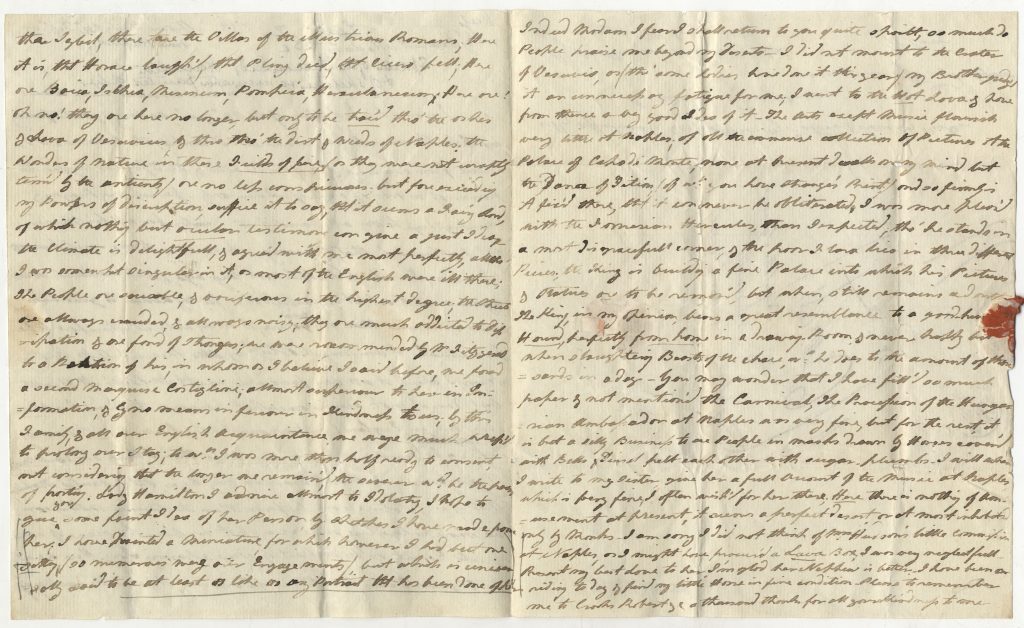 thee I exist, there are the Villas of the illustrious Romans, Here
it is, tht Horace laugh'd, tht Pliny died, tht Cicero fell, Here
are Baia, Ischia, Misenum, Pompeia, Herculaneum; Here are!
oh no! they are here no longer but only to be trac'd thro' the ashes
& Lava of Vesuvius, & thro' the dirt & weeds of Naples. the
Wonders of Nature in these Fields of fire, (or they were not
term'd by the antients) are no less conspicuous but far exceeding
my Powers of Description, suffice it to say, tht it seems a Fairy Land,
of which nothing but ocular testimony can give a just Idea
the Climate is delightfull, & agreed with me most perfectly, altho'
I was somewhat singular in it, as most of the English were ill there;
The People are sociable, & vociferous in the highest degree, the Streets
are allways crouded & allways noisy; they are much addicted to
& are fond of Strangers; we were recommended by Mr Fitzgerald
to a Relation of his, in whom as I believe I said before, we found
a second Marquise Costizline, allmost superiour to her in In-
=formation, & by no means inferiour in Kindness to us, by this
Family, & all our English Acquaintance, we were much press'd
to prolong our Stay; to wch I was more than half ready to consent
not considering tht the longer we remain'd the severer wd be the pang
of parting. Lady Hamilton I admire allmost to Idolatry, I hope to
give you some faint Idea of her Person by Sketches I have made from
her, I have Painted a Miniature for which however I had but one
Sitting (so numerous were our Engagements) but which is univer=
sally said to be at least as like as any Portrait tht has been done of her
Indeed Madam I fear I shall return to you quite spoilt, so much do
People praise me beyond my deserts. I did not mount to the Crater
of Vesuvio, as (tho' some Ladies have done it this year) my Brother
it an unnecessary fatigue for me, I went to the Hot Lava & have
from thence a very good Idea of it. The Arts except Music flourish
very little at Naples; of all the immense collection of Pictures at the
Palace of Capo di Monte, none at present dwell on my mind but
the Danae of Titian (of wch you have Strange's Print) and so firmly is
it fix'd there, tht it can never be obliterated, I was more pleas'd
with the Farnesian Hercules, than I expected, tho' he stands in
a most disgracefull corner, & the poor Flora lies in three different
Pieces, the King is building a fine Palace into which his Pictures
& Statues are to be remov'd, but when, still remains a
The King in my opinion bears a great resemblance to a good
Hound, perfectly from home in a drawing Room, & never but
when slaughtering Beasts of the chace wch he does to the amount of thou
=sands in a day – You may wonder that I have fill'd so much
paper & not mention'd the Carnival, The Procession of the Hunga
rian Ambassador at Naples was very fine, but for the rest, it
is but a silly Business to see People in masks drawn by Horses cover'd
with Bells & Tinsel pelt each other with sugar plumbs. I will when
I write to my Sister give her a full Account of the Music at Naples
which is very fine, I often wish'd for her there, Here there is nothing of am
=usement at present, it seems a perfect desert, or at most inhabited
only by Monks. I am sorry I did not think of Miss Parsons little commission
at Naples, as I might have procur'd a Lava Box, I was very neglectfull
Present my best love to her I'm glad her Nephew is better. I have been a
riding to day & find my little Horse in fine condition. Please to remember
me to Crooks Robert &c a thousand thanks for all your Kindness to me